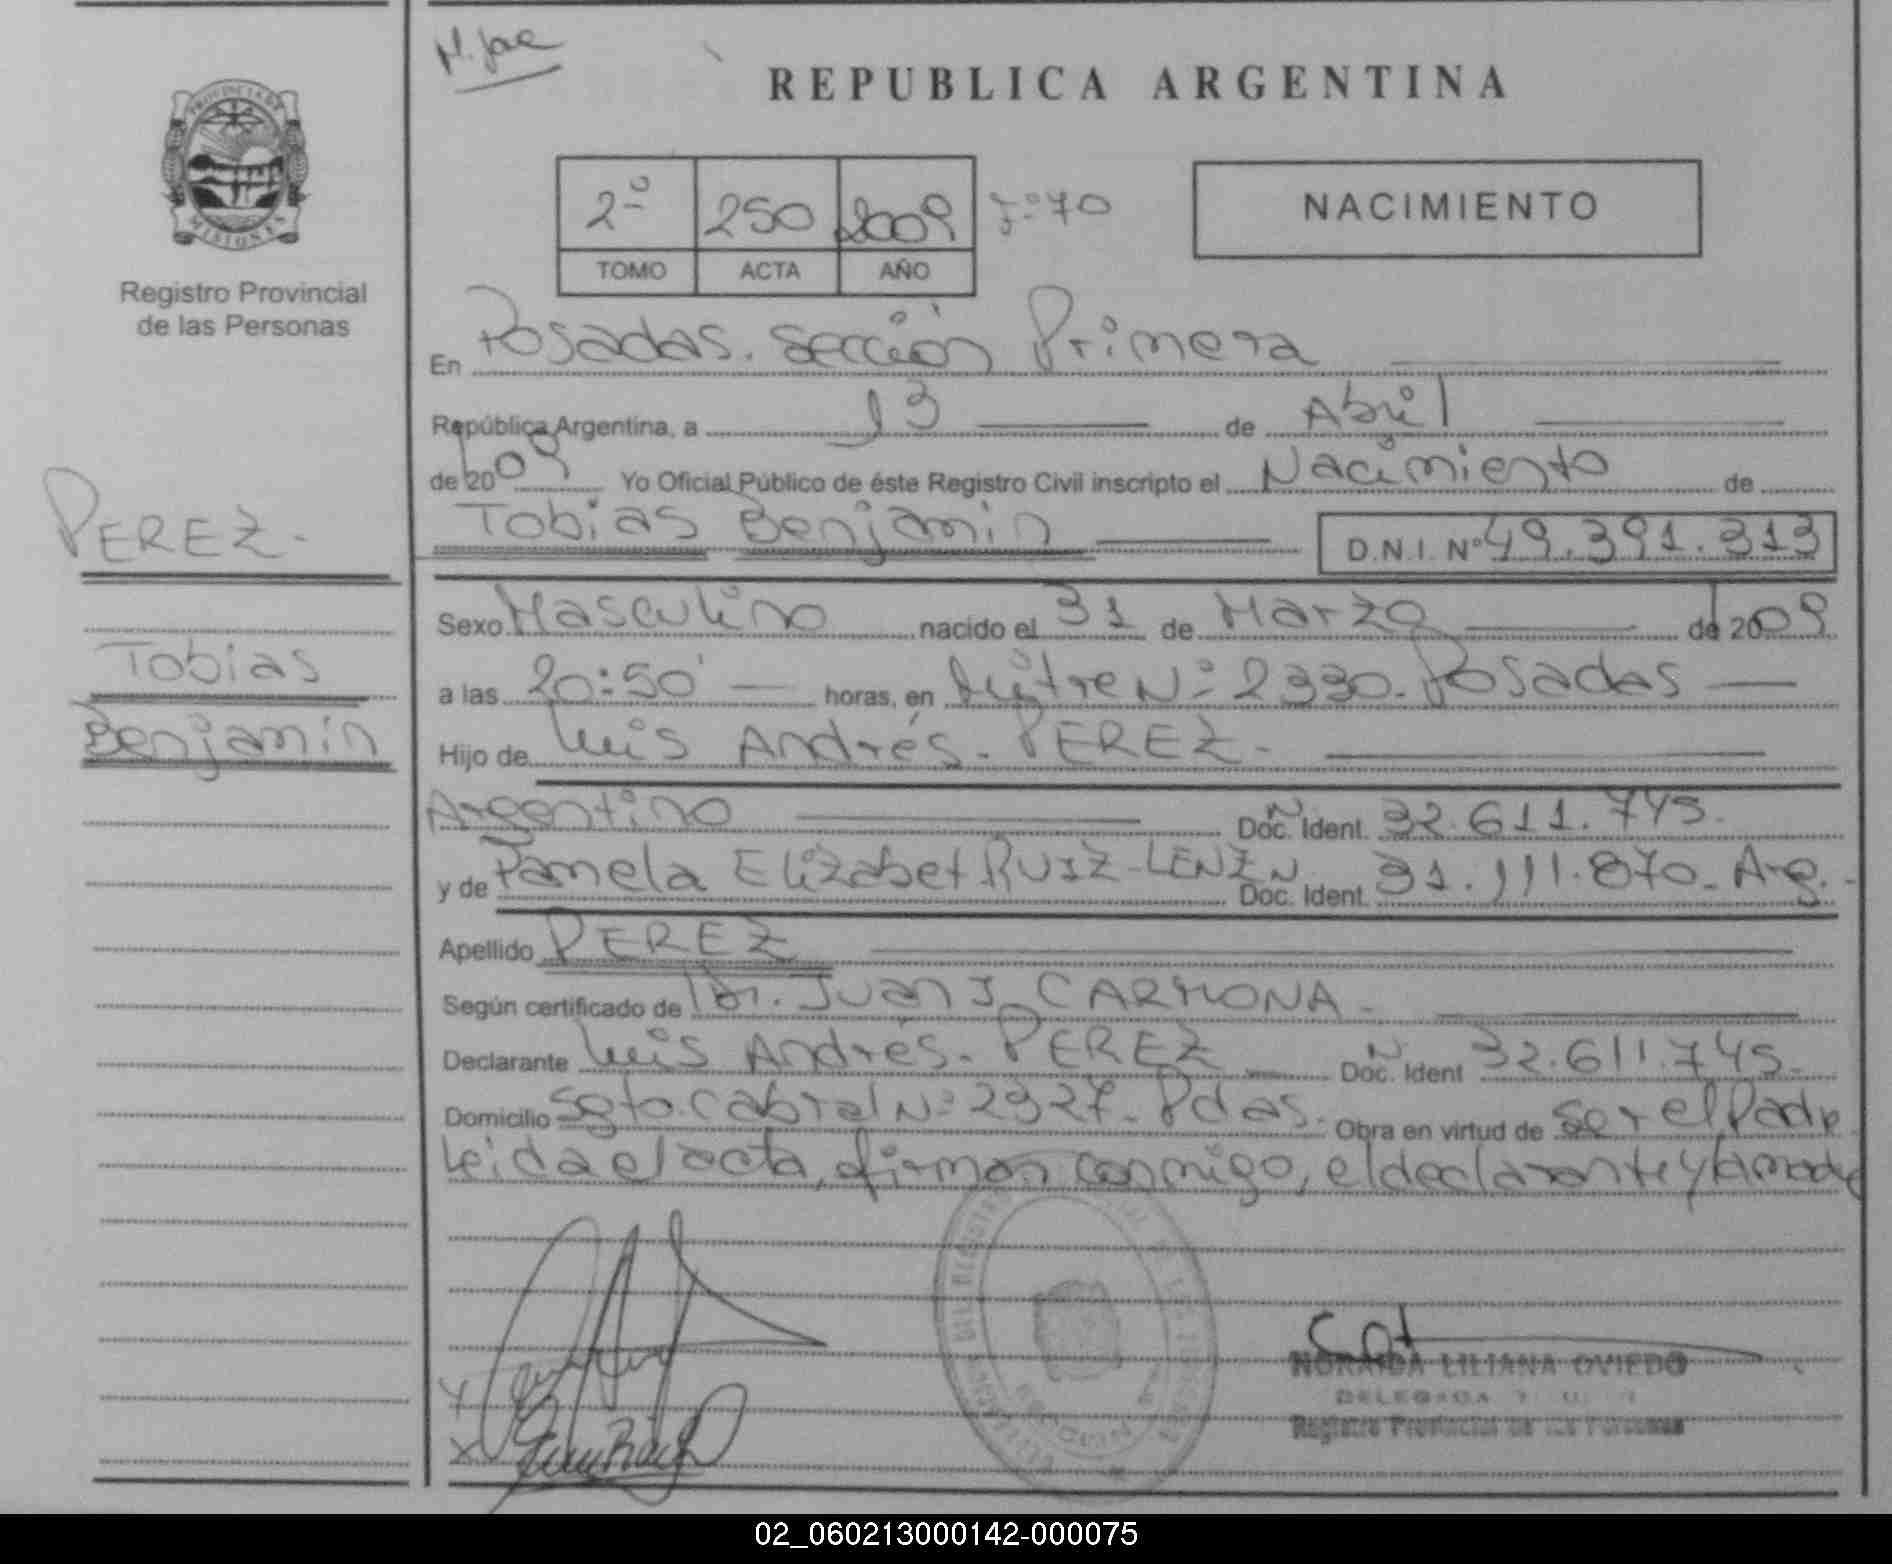 REPUBLICA ARGENTINA
PROVINCIA DE
MISIONES
Registro Provincial
de las Personas
2º 250 2009 Fº 70
TOMO ACTA AÑO
NACIMIENTO
En Posadas. Sección Primera
República Argentina, a 13 de Abril
de 2009 Yo Oficial Público de éste Registro Civil inscripto el Nacimiento de
PEREZ.
Tobias Benjamin D.N.I. Nº 49.391.313
Sexo Masculino nacido el 31 de Marzo de 2009
Tobias
a las 20:50' horas, en Mitre Nº 2330. Posadas
Benjamin
Hijo de Luis Andrés. PEREZ.
Argentino Doc. Ident. Nº 32.611.745.
y de Pamela Elizabet RUIZ LENZ Doc. Ident. Nº 31.111.870. Arg.
Apellido PEREZ
Según certificado de Dr. Juan J. CARMONA.
Declarante Luis Andrés. PEREZ Doc. Ident Nº 32.611.745.
Domicilio Sgto. Cabral Nº 2327. Pdas. Obra en virtud de ser el Padre
Leida el acta, firman conmigo, el declarante y la madre
NORAIDA LILIANA OVIEDO
DELEGADA
Registro Provincial de las Personas
02_060213000142-000075